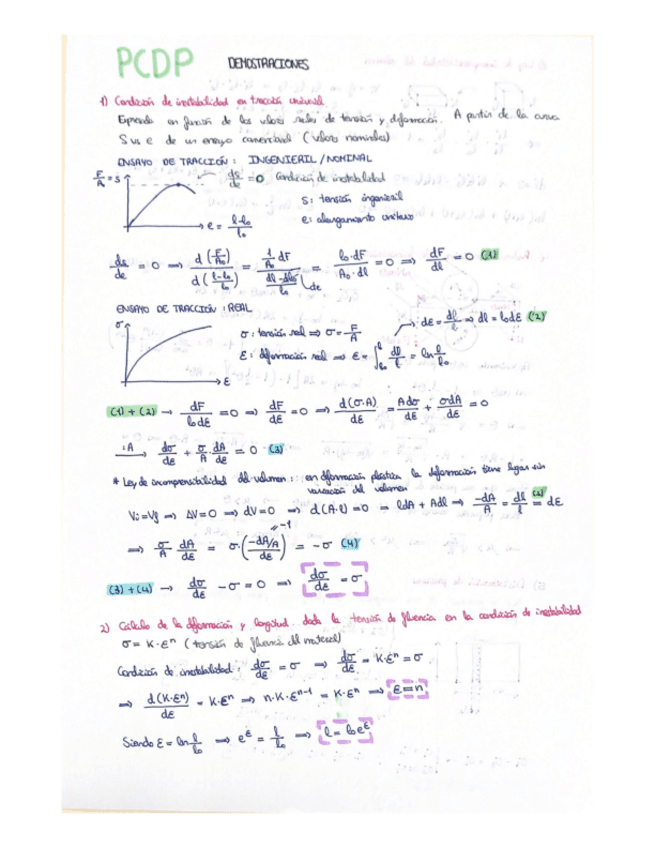 PCDP DEMOSTRACIONES
1) Condición de inestabilidad en tracción uniaxial
Expresada en función de los valores reales de tensión y deformación. A partir de la curva
S vs e de un ensayo convencional (valores nominales)
ENSAYO DE TRACCIÓN: INGENIERIL/NOMINAL
F/A = S ds/de = 0 Condición de inestabilidad
S: tensión ingenieril
e = l-l₀/l₀ e: alargamiento unitario
ds/de = 0 ⟹ d(F/A₀)/d(l-l₀/l₀) = 1/A₀ dF / dl-dl₀/l₀ = l₀·dF/A₀·dl = 0 ⟹ dF/dl = 0 (1)
de
ENSAYO DE TRACCIÓN: REAL
σ σ: tensión real ⟹ σ = F/A dε = dl/l ⟹ dl = l₀dε (2)
ε: deformación real ⟹ ε = ∫ dl/l = ln l/l₀
ε
(1) + (2) → dF/l₀dε = 0 ⟹ dF/dε = 0 ⟹ d(σ·A)/dε = Adσ/dε + σdA/dε = 0
:A → dσ/dε + σ/A dA/dε = 0 (3)
* Ley de incompresibilidad del volumen: en deformación plástica la deformación tiene lugar sin
variación del volumen
Vi = Vf ⟹ ΔV = 0 ⟹ dV = 0 ⟹ d(A·l) = 0 = ldA + Adl ⟹ -dA/A = dl/l = dε
-1
⟹ σ/A dA/dε = σ·(-dA/A / dε) = -σ (4)
(3) + (4) → dσ/dε - σ = 0 ⟹ dσ/dε = σ
2) Cálculo de la deformación y longitud dada la tensión de fluencia en la condición de inestabilidad
σ = K·εⁿ (tensión de fluencia del material)
Condición de inestabilidad: dσ/dε = σ ⟹ dσ/dε = K·εⁿ = σ
⟹ d(K·εⁿ)/dε = K·εⁿ ⟹ n·K·εⁿ⁻¹ = K·εⁿ ⟹ ε = n
Siendo ε = ln l/l₀ ⟹ e^ε = l/l₀ ⟹ l = l₀e^ε